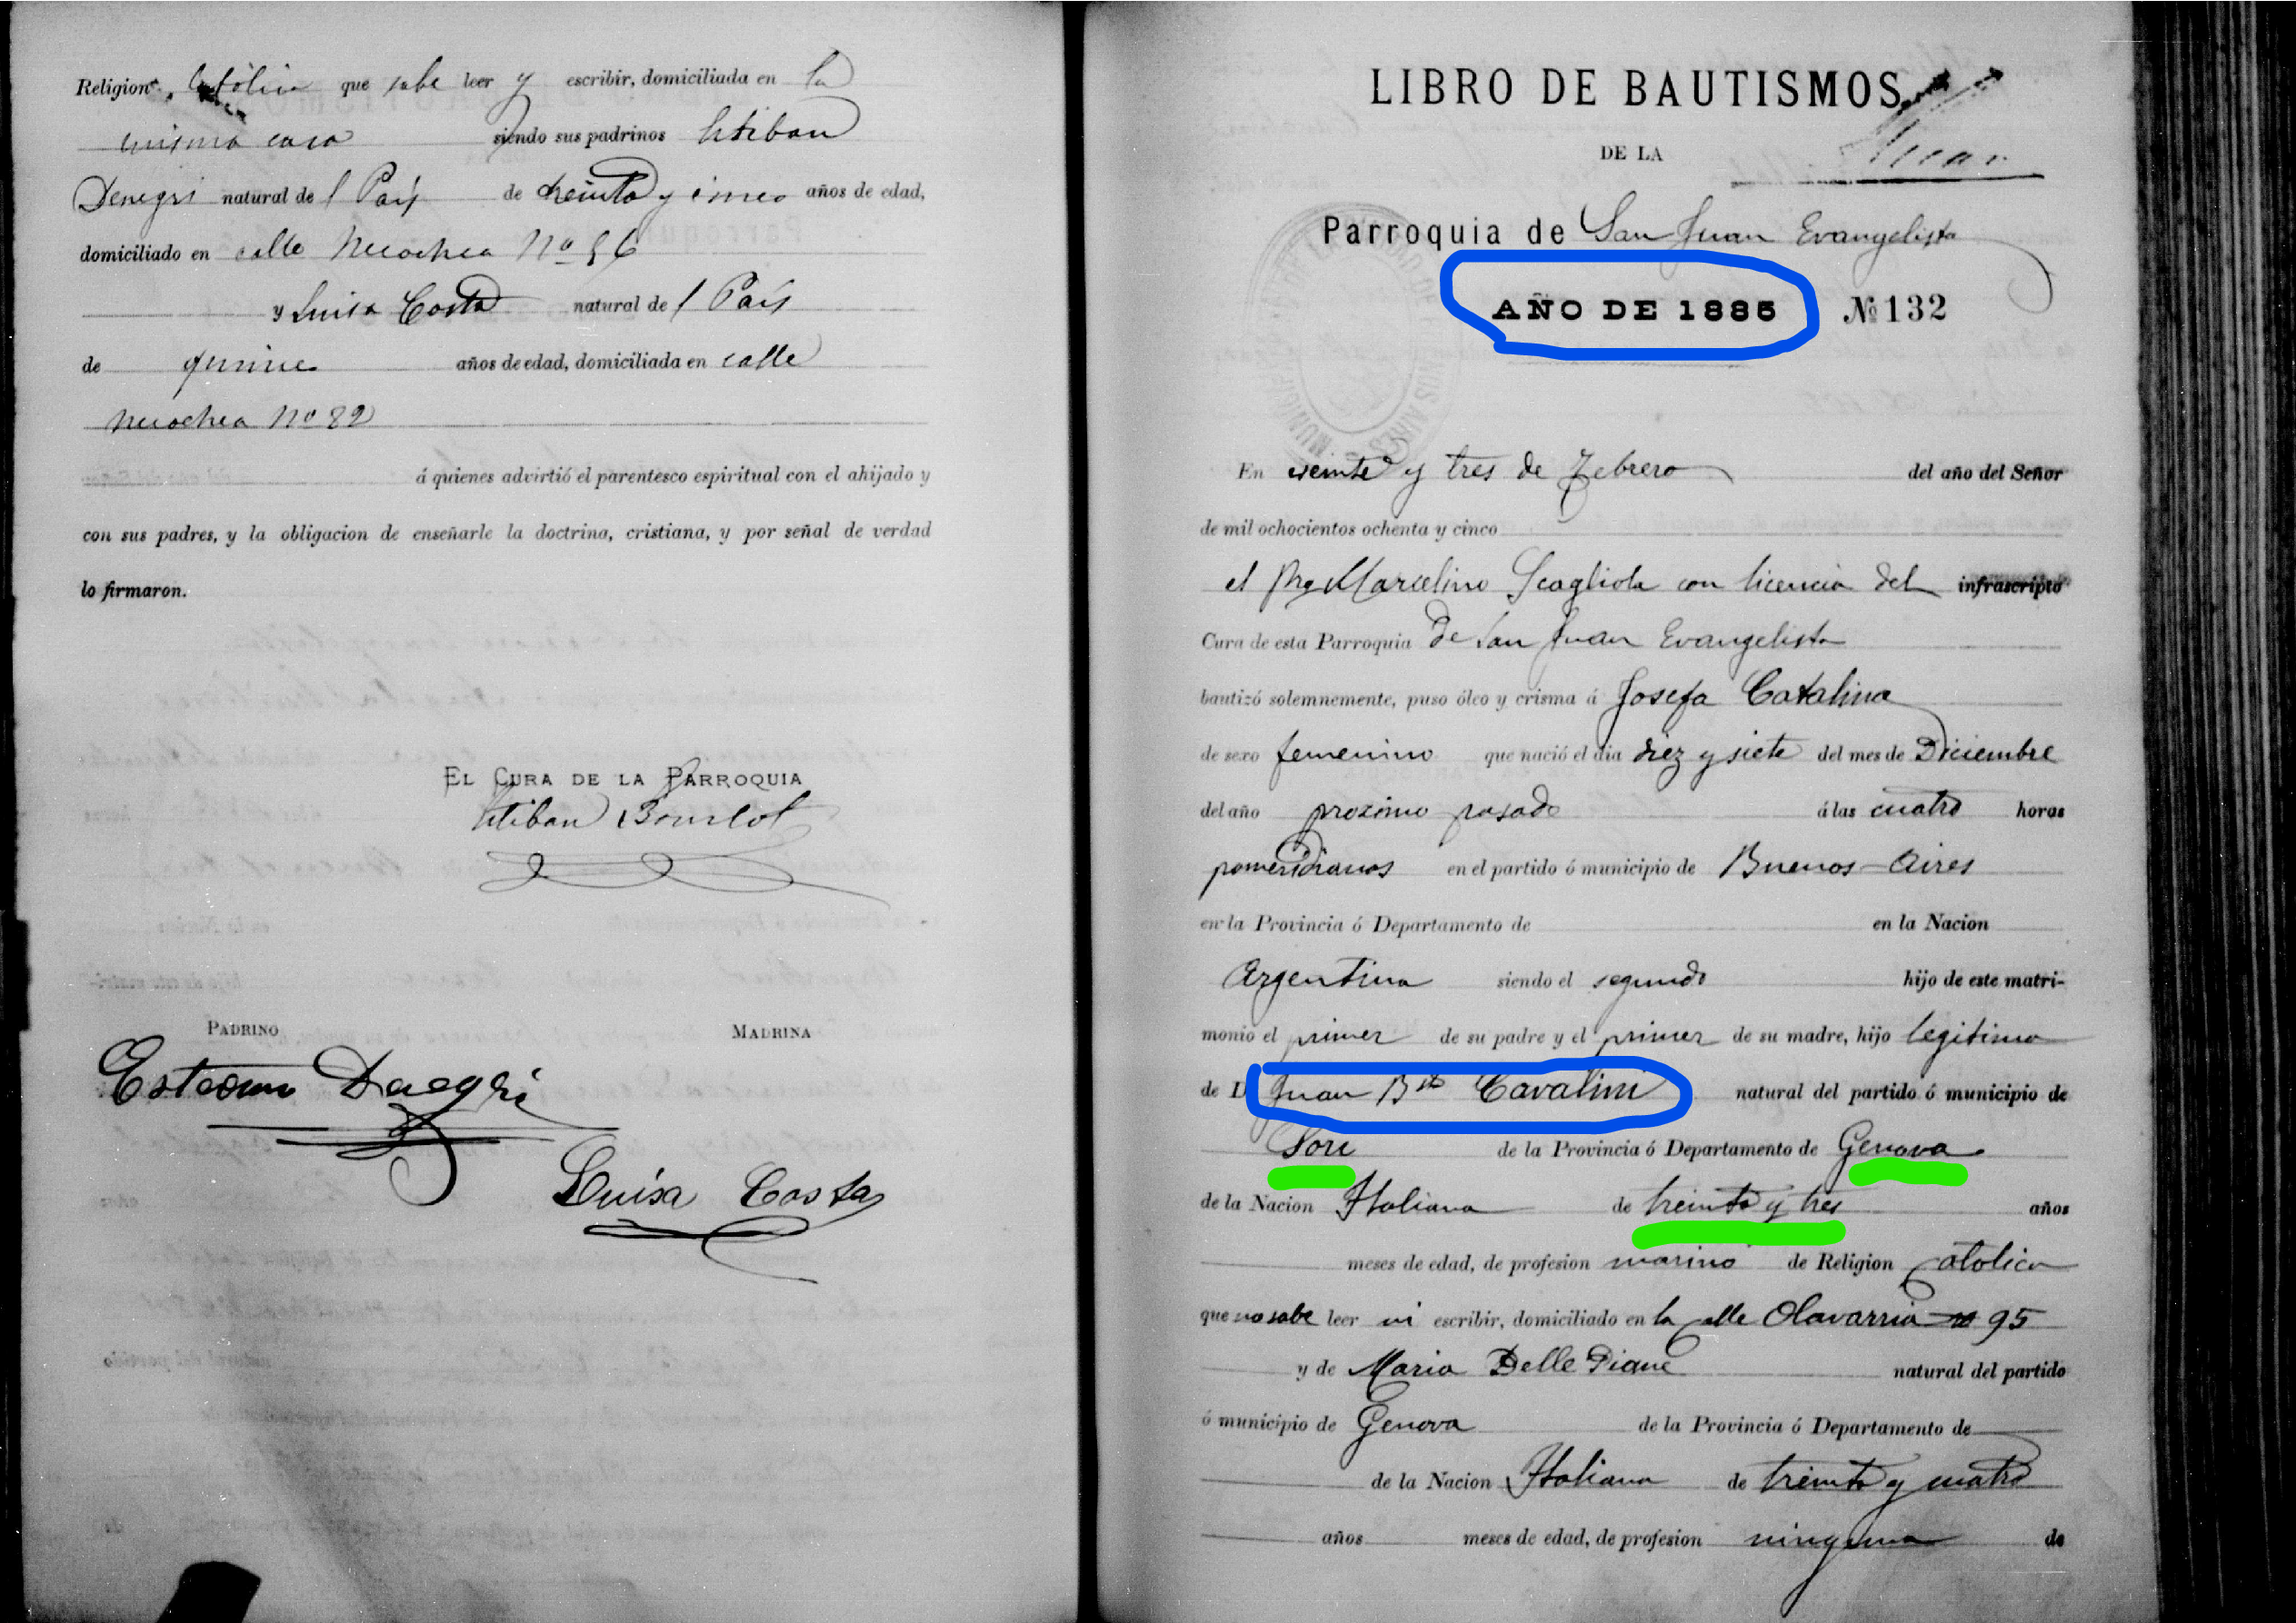 Religion Católica que sabe leer y escribir, domiciliada en la
misma casa siendo sus padrinos Esteban
Denegri natural de l País de treinta y cinco años de edad,
domiciliado en calle Necochea No 56
y Luisa Costa natural de l País
de quince años de edad, domiciliada en calle
Necochea No 82
á quienes advirtió el parentesco espiritual con el ahijado y
con sus padres, y la obligacion de enseñarle la doctrina, cristiana, y por señal de verdad
lo firmaron.
EL CURA DE LA PARROQUIA
Esteban Bourlot
PADRINO MADRINA
Luisa Costa
LIBRO DE BAUTISMOS
DE LA
Parroquia de San Juan Evangelista
AÑO DE 1885 No 132
En veinte y tres de Febrero del año del Señor
de mil ochocientos ochenta y cinco
el Pbro Marcelino Scagliola con licencia del infrascripto
Cura de esta Parroquia de San Juan Evangelista
bautizó solemnemente, puso óleo y crisma á Josefa Catalina
de sexo femenino que nació el dia diez y siete del mes de Diciembre
del año proximo pasado á las cuatro horas
pomeridianas en el partido ó municipio de Buenos-Aires
en la Provincia ó Departamento de en la Nacion
Argentina siendo el segundo hijo de este matri-
monio el primer de su padre y el primer de su madre, hijo legitimo
de D. Juan Bta Cavalini natural del partido ó municipio de
Sori de la Provincia ó Departamento de Genova
de la Nacion Italiana de treinta y tres años
meses de edad, de profesion marino de Religion Catolica
que no sabe leer ni escribir, domiciliado en la calle Olavarria no 95
y de Maria Delle Piane natural del partido
ó municipio de Genova de la Provincia ó Departamento de
de la Nacion Italiana de treinta y cuatro
años meses de edad, de profesion ninguna de